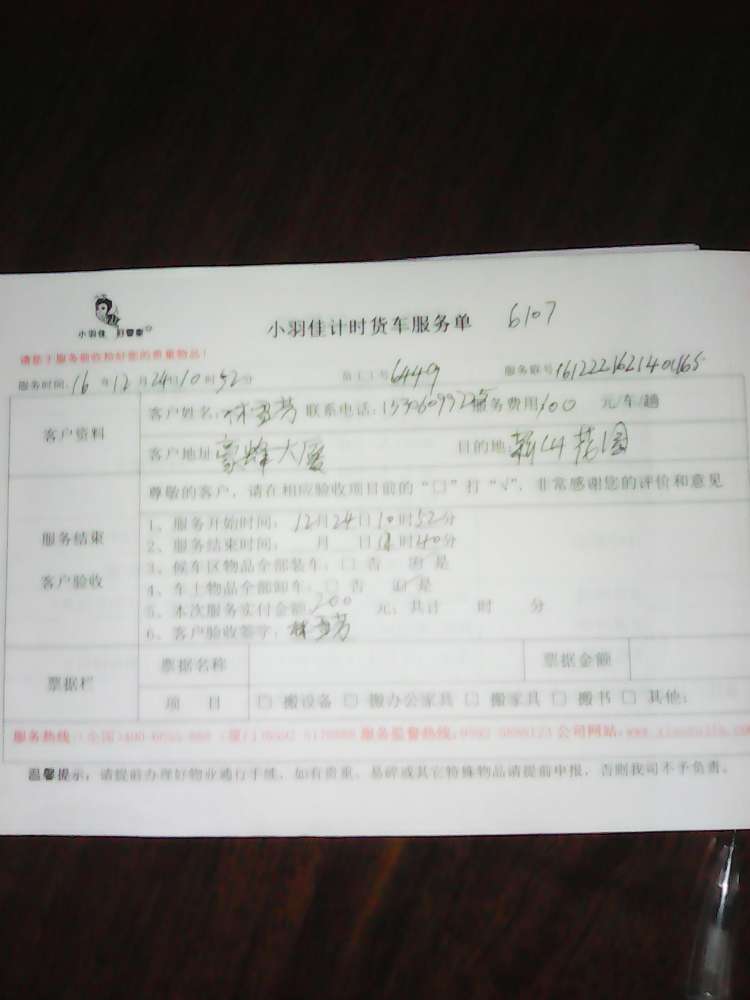 小羽佳 好管家
小羽佳计时货车服务单 6107
服务时间: 16 年 12 月 24日 10 时 52 分 员工工号 6449 服务账号 161222162140165
客户资料
客户姓名: 林 芳 联系电话: 服务费用 100 元/车/趟
客户地址 蒙蜂大厦 目的地 花园
尊敬的客户,请在相应验收项目前的“□”打“√”,非常感谢您的评价和意见
服务结束
客户验收
1、服务开始时间: 12月24日10时52分
2、服务结束时间: 月 日 时40分
3、候车区物品全部装车:□ 否 是
4、车上物品全部卸车:□ 否 是
5、本次服务实付金额: 200 元; 共计 时 分
6、客户验收签字: 林 芳
票据栏
票据名称 票据金额
项 目 □ 搬设备 □ 搬办公家具 □ 搬家具 □ 搬书 □ 其他:
服务热线: 服务监督热线: 公司网站:
温馨提示:请提前办理好物业通行手续,如有贵重、易碎或其它特殊物品请提前申报,否则我司不予负责。